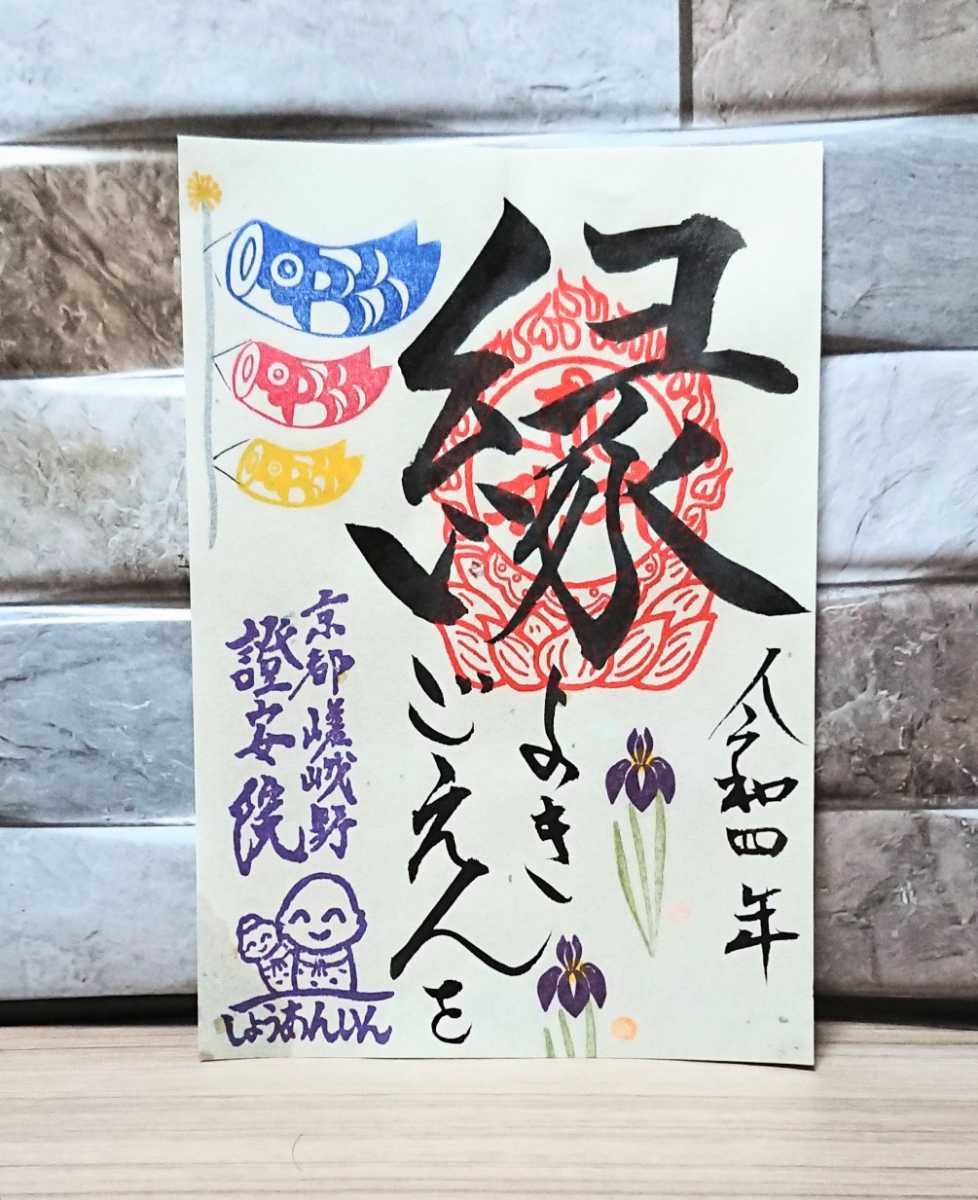 令和四年
縁
よきごえんを
京都嵯峨野
證安院
しょうあんいん